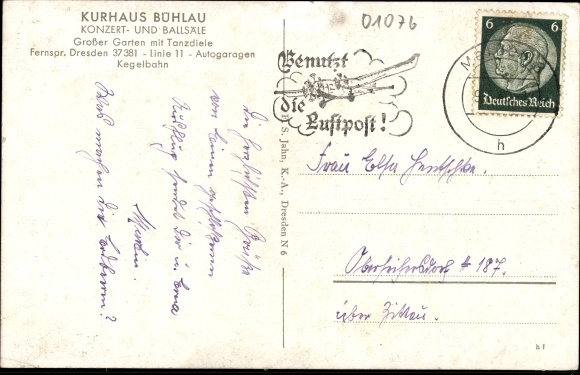 KURHAUS BÜHLAU
KONZERT- UND BALLSÄLE
Großer Garten mit Tanzdiele
Fernspr. Dresden 37381 - Linie 11 - Autogaragen
Kegelbahn
01076
Benutzt
die
Luftpost!
6 6
Deutsches Reich
h
Die herzlichsten Grüße
von einem
Ausflug sendet Dir u. Erna
Martin.
Was machen die Erdbeeren?
S. Jahn, K.-A., Dresden N 6
Frau Elsa Hentschke.
Oberseifersdorf # 187.
über Zittau.
h I